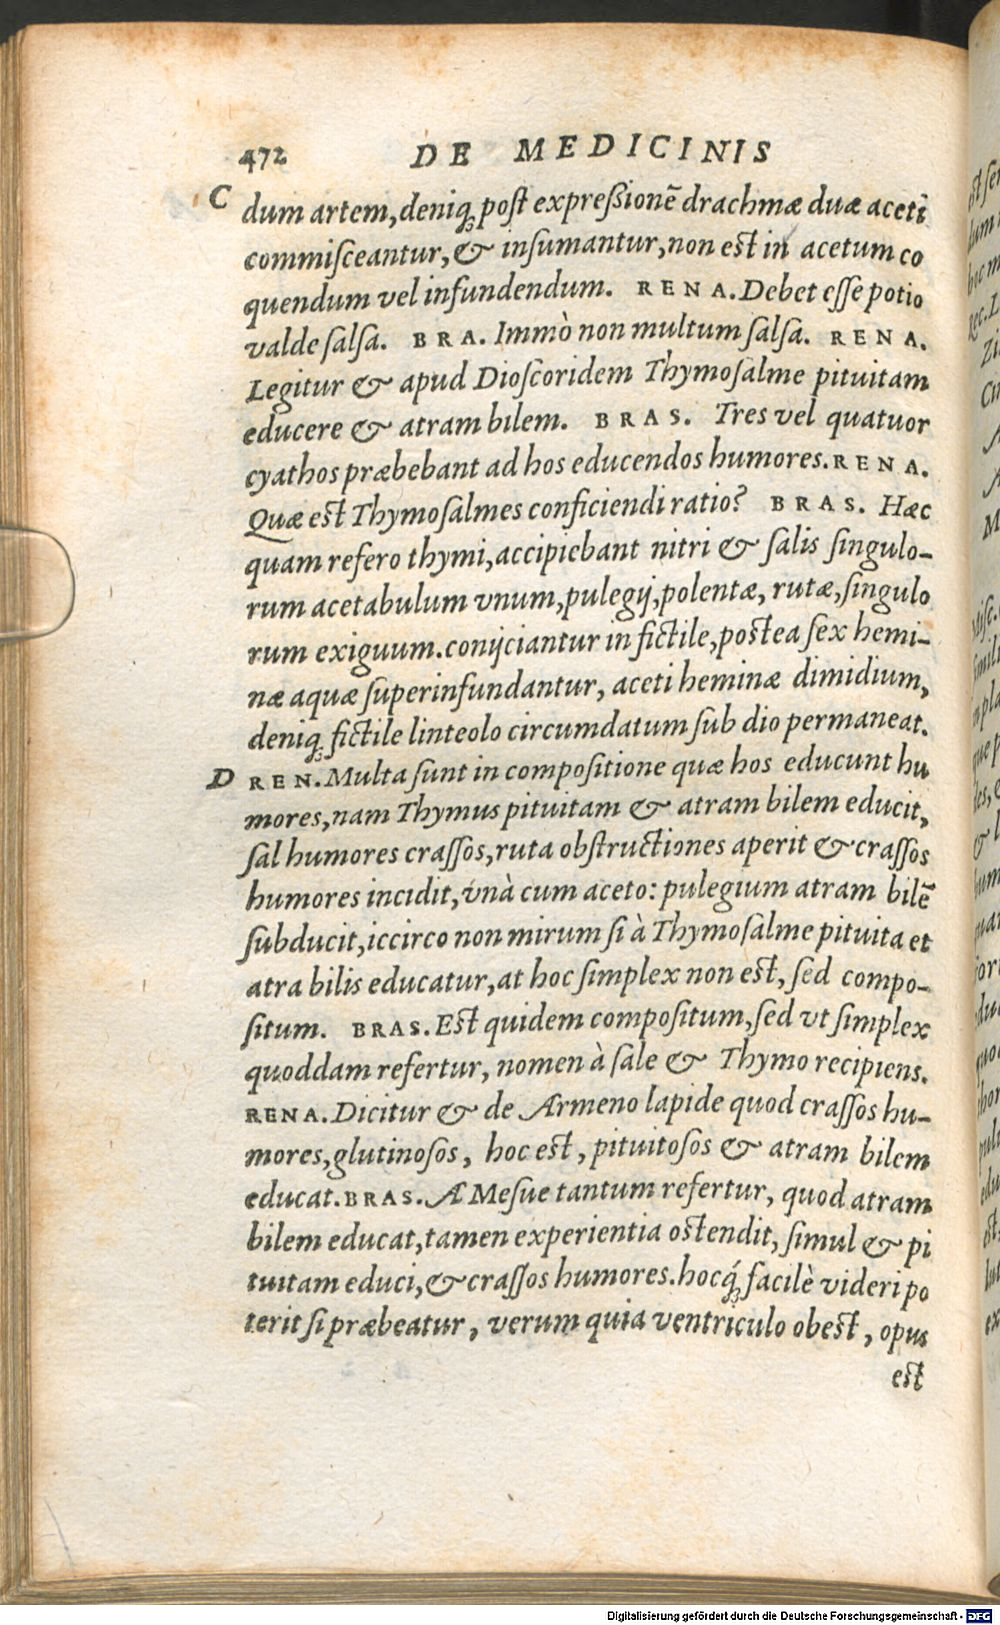 472 DE MEDICINIS
C dum artem, deniq; post expreßionē drachmæ duæ aceti
commiſceantur, & inſumantur, non est in acetum co
quendum vel infundendum. RENA. Debet eſſe potio
valde ſalſa. BRA. Immò non multum ſalſa. RENA.
Legitur & apud Dioſcoridem Thymoſalme pituitam
educere & atram bilem. BRAS. Tres vel quatuor
cyathos præbebant ad hos educendos humores. RENA.
Quæ est Thymoſalmes conficiendi ratio? BRAS. Hæc
quam refero thymi, accipiebant nitri & ſalis ſingulo-
rum acetabulum vnum, pulegij, polentæ, rutæ, ſingulo
rum exiguum. conijciantur in fictile, postea ſex hemi-
næ aquæ ſuperinfundantur, aceti heminæ dimidium,
deniq; fictile linteolo circumdatum ſub dio permaneat.
D REN. Multa ſunt in compoſitione quæ hos educunt hu
mores, nam Thymus pituitam & atram bilem educit,
ſal humores craſſos, ruta obſtructiones aperit & craſſos
humores incidit, vnà cum aceto: pulegium atram bilē
ſubducit, iccirco non mirum ſi à Thymoſalme pituita et
atra bilis educatur, at hoc ſimplex non est, ſed compo-
ſitum. BRAS. Est quidem compoſitum, ſed vt ſimplex
quoddam refertur, nomen à ſale & Thymo recipiens.
RENA. Dicitur & de Armeno lapide quod craſſos hu-
mores, glutinoſos, hoc est, pituitoſos & atram bilem
educat. BRAS. A Meſue tantum refertur, quod atram
bilem educat, tamen experientia ostendit, ſimul & pi
tuitam educi, & craſſos humores. hocq́; facilè videri po
terit ſi præbeatur, verum quia ventriculo obest, opus
est
Digitalisierung gefördert durch die Deutsche Forschungsgemeinschaft - DFG